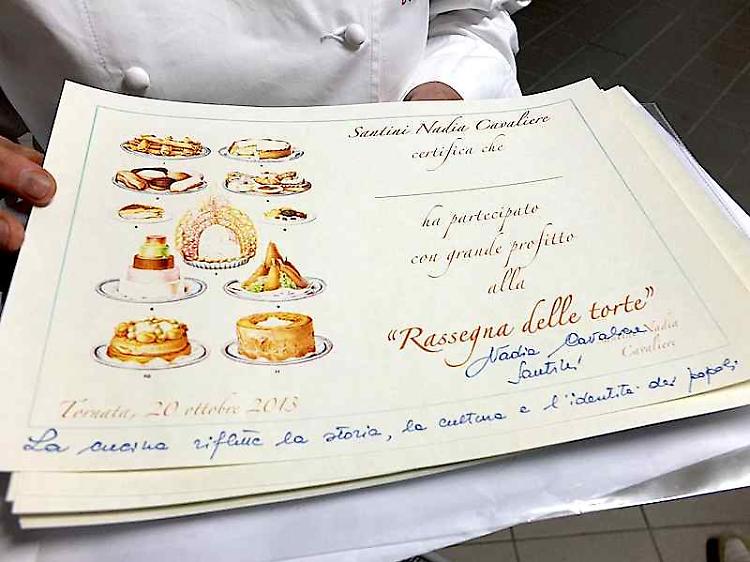 Santini Nadia Cavaliere
certifica che
ha partecipato
con grande profitto
alla
"Rassegna delle torte"
Nadia
Cavaliere
Nadia Cavaliere
Santini
Tornata, 20 ottobre 2013
La cucina riflette la storia, la cultura e l'identità dei popoli